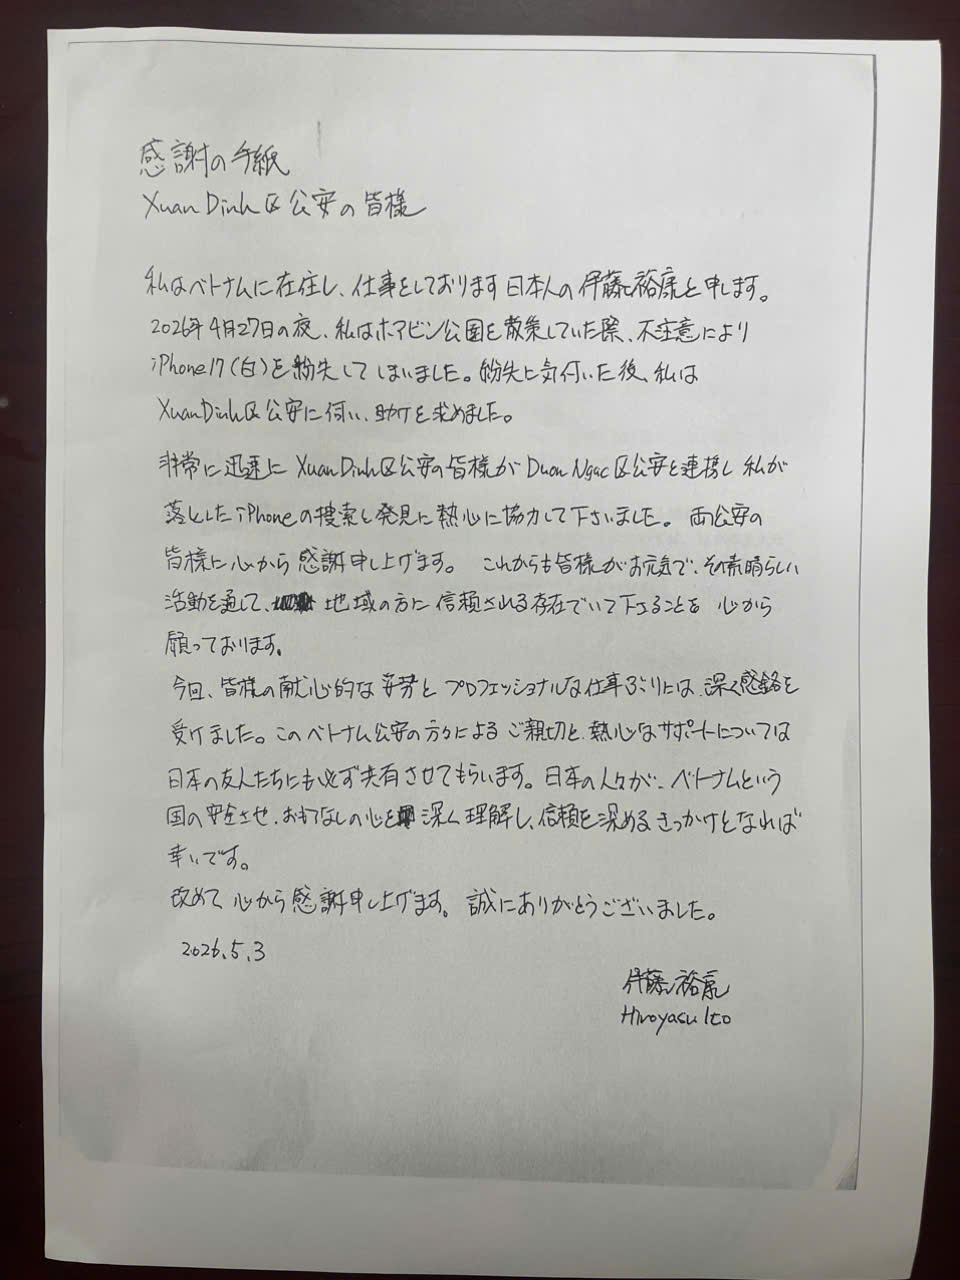 感謝の手紙
Xuan Dinh区公安の皆様
私はベトナムに在住し、仕事をしております日本人の伊藤裕康と申します。
2026年4月27日の夜、私はホアビン公園を散策していた際、不注意により
iPhone17(白)を紛失してしまいました。紛失に気付いた後、私は
Xuan Dinh区公安に伺い、助けを求めました。
非常に迅速にXuan Dinh区公安の皆様がDuon Ngac区公安と連携し私が
落としたiPhoneの捜索し発見に熱心に協力して下さいました。両公安の
皆様に心から感謝申し上げます。これからも皆様がお元気で、その素晴らしい
活動を通して、地域の方に信頼される存在でいて下さることを心から
願っております。
今回、皆様の献心的な姿勢とプロフェッショナルな仕事ぶりには、深く感銘を
受けました。このベトナム公安の方々によるご親切と、熱心なサポートについては
日本の友人たちにも必ず共有させてもらいます。日本の人々が、ベトナムという
国の安全させ、おもてなしの心を深く理解し、信頼を深めるきっかけとなれば
幸いです。
改めて、心から感謝申し上げます。誠にありがとうございました。
2026.5.3
伊藤裕康
Hiroyasu Ito